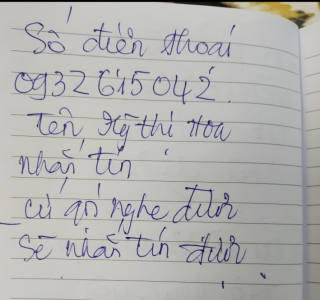 Số điện thoại
0932615042.
Tên Kỹ thị Hoa
nhắn tin
cứ gọi nghe được
sẽ nhắn tin được